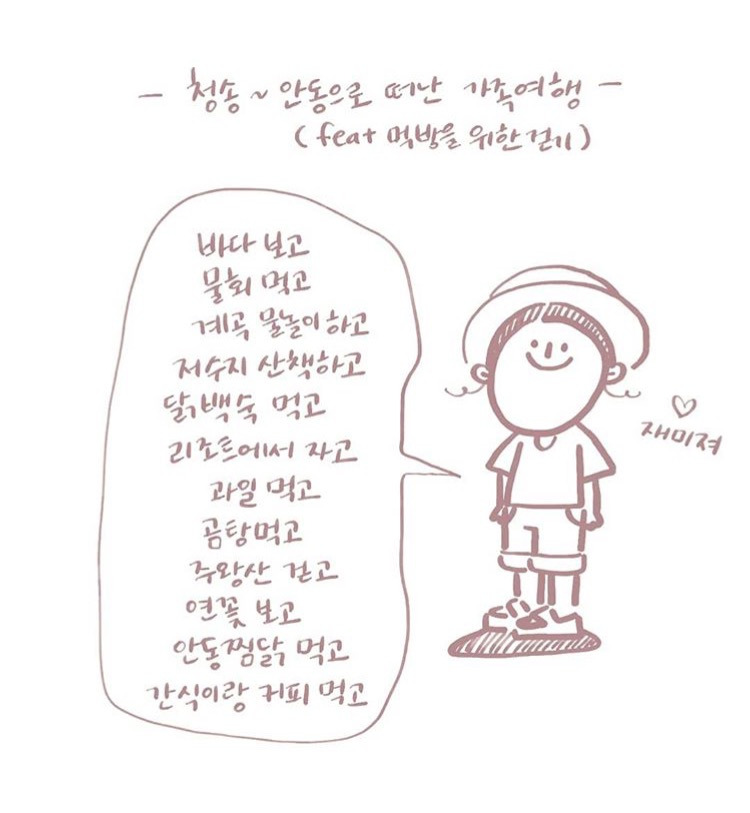 - 청송 ~ 안동으로 떠난 가족여행 -
(feat 먹방을 위한 걷기)
바다 보고
물회 먹고
계곡 물놀이하고
저수지 산책하고
닭백숙 먹고
리조트에서 자고
과일 먹고
곰탕먹고
주왕산 걷고
연꽃 보고
안동찜닭 먹고
간식이랑 커피 먹고
♡
재미져